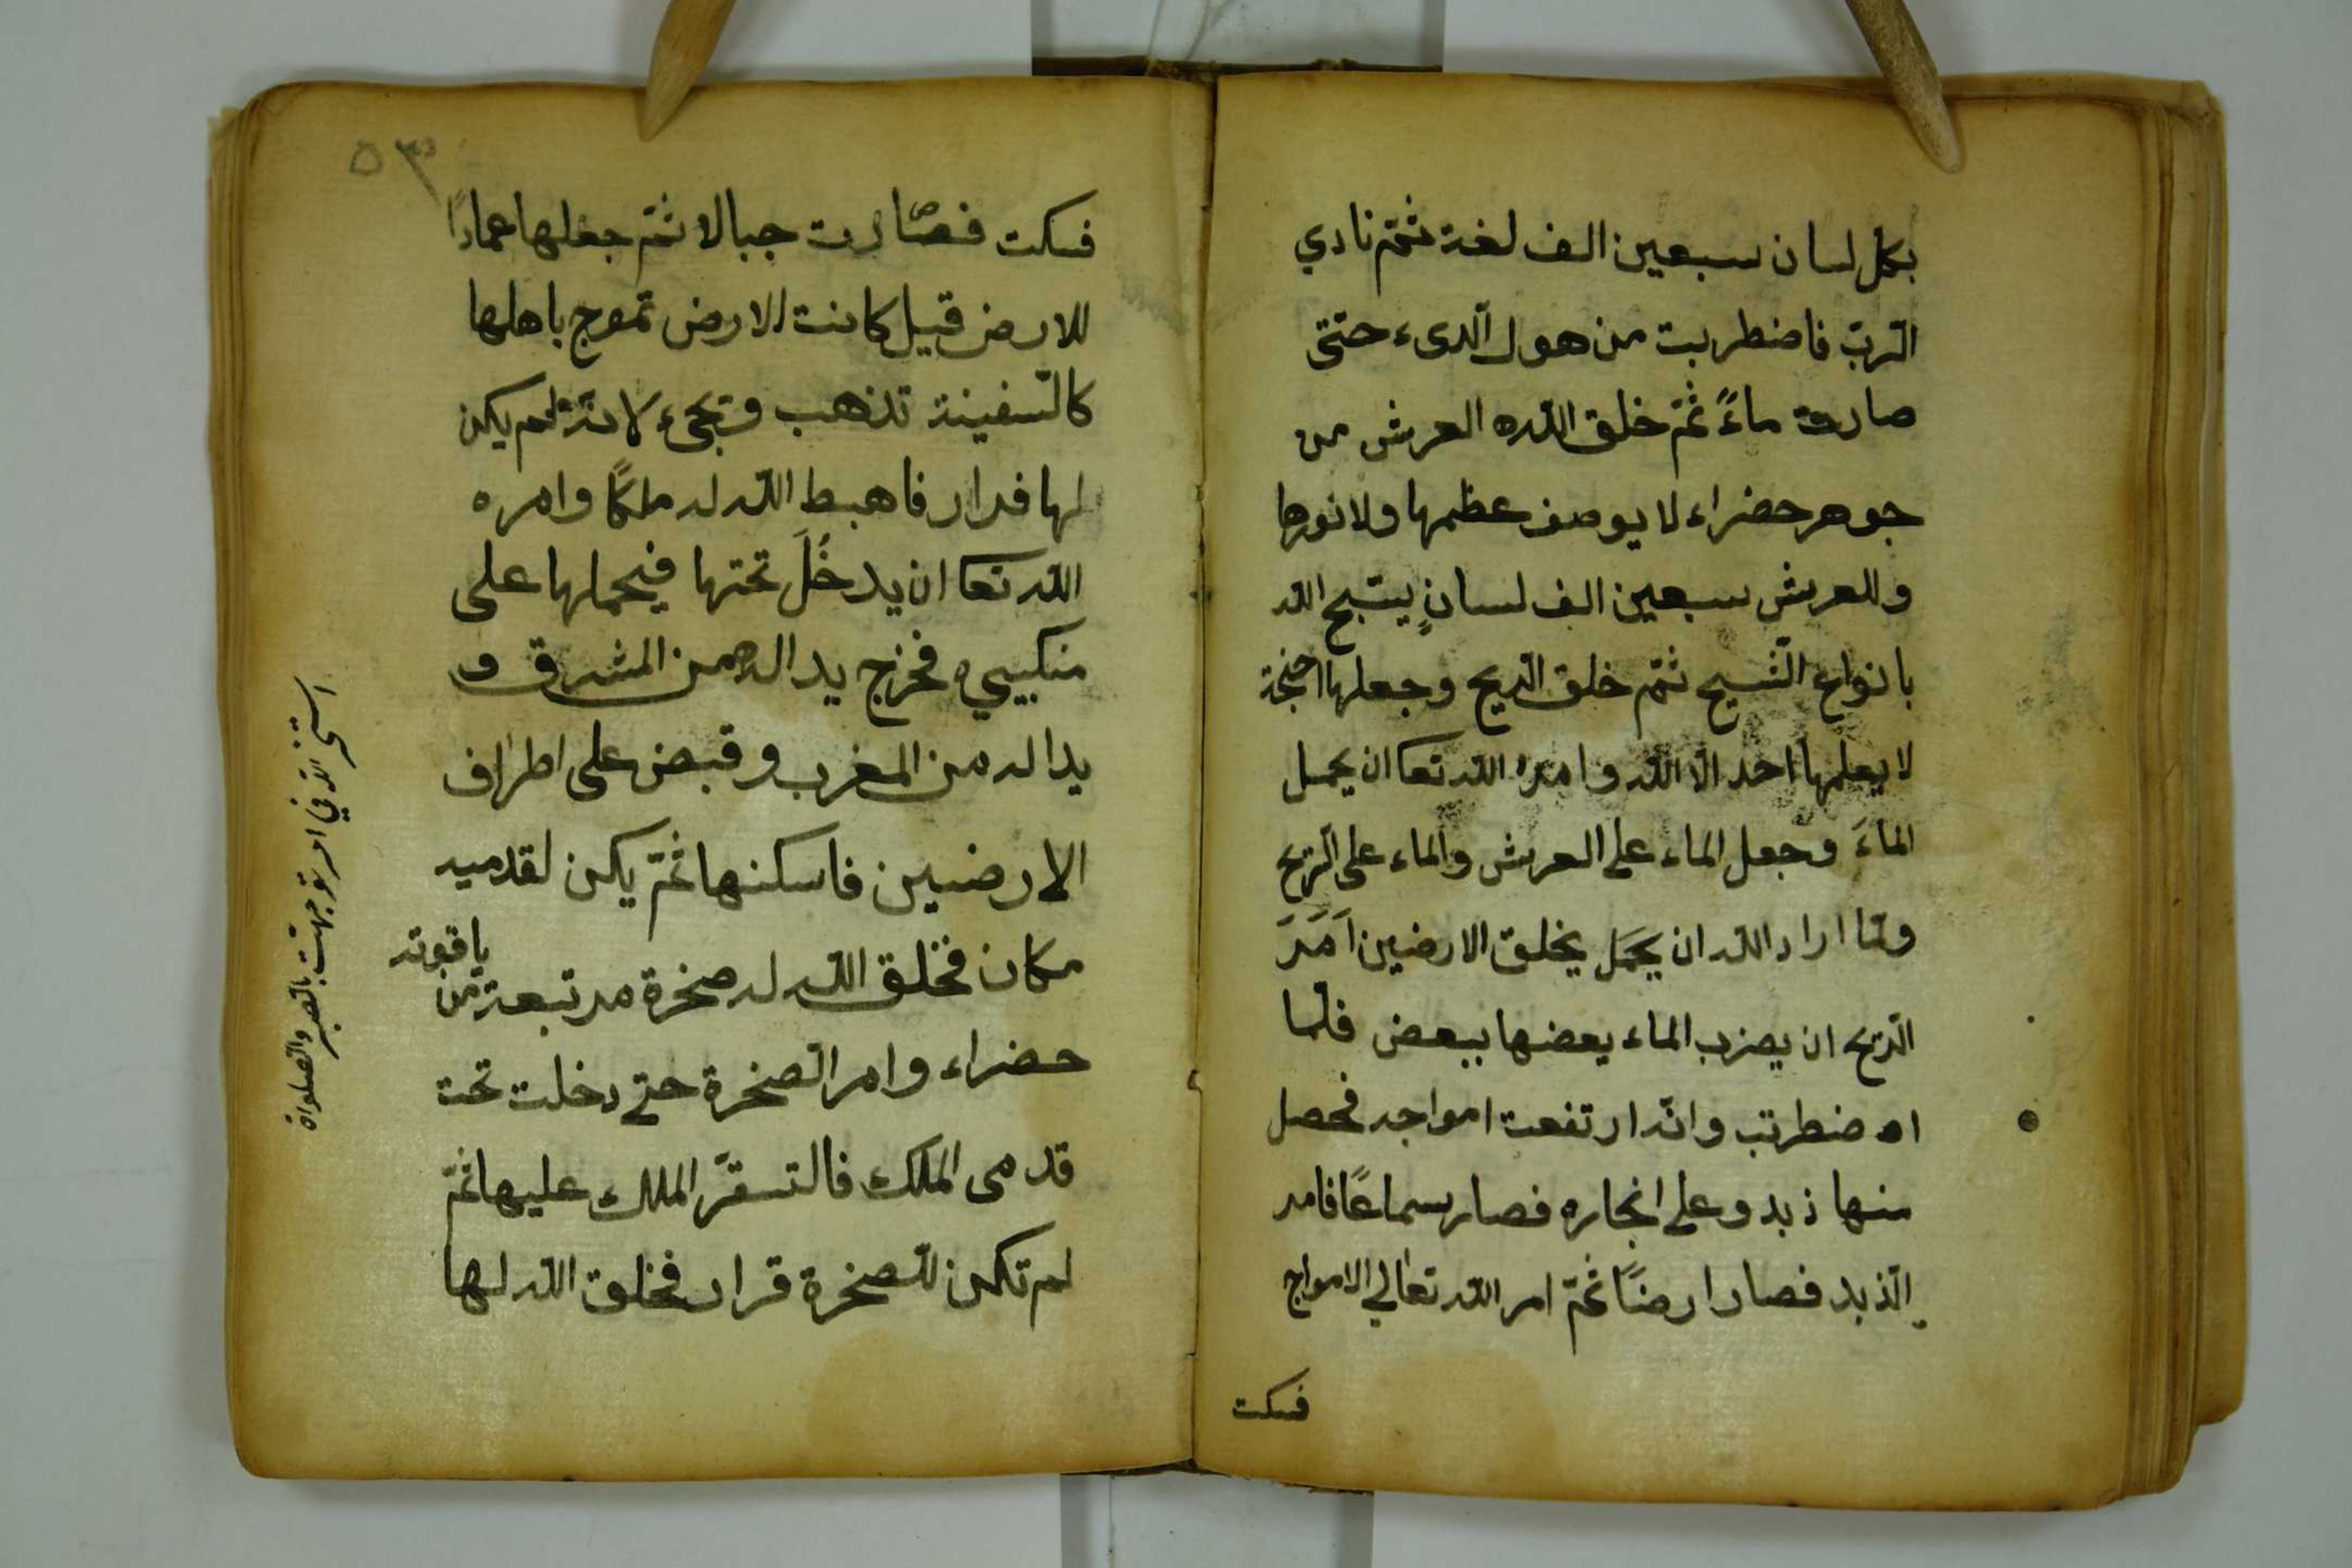 بكل لسان سبعين الف لغة ثمّ نادي
الربّ فاضطربت من هول الندىء حتىّ
صارت ماءً ثمّ خلق اللّه العرش من
جوهر حضراء لا يوصف عظمها ولا نورها
وللعرش سبعين الف لسانٍ يسّبح اللّه
بانواع التّسبيح ثمّ خلق الرّيح وجعلها اجنحة
لا يعلمها احد الّا اللّه وامره اللّه تعا ان يحمل
الماءَ وجعل الماء على العرش والماء على الرّيح
ولمّا اراد اللّه ان يحَمَل يخلق الارضين اَمَرَ
الرّيح ان يضرب الماء بعضها ببعض فلمّا
اضطربت وانّه ارتفعت امواجه فحصل
منها زبد وعلى انجاره فصار سماعًا فامر
الزّبد فصار ارضًا ثمّ امر اللّه تعالي الامواج
فسكت
٥٣
فسكت فصارت جبالا ثمّ جعلها عمادًا
للارض قيل كانت الارض تموج باهلها
كالسّفينة تذهب وتجىء لانّه لم يكن
لها قرار فاهبط اللّه له ملكًا وامره
اللّه تعا ان يدخُلَ تحتها فيحملها على
منكبيه فخرج يدا له من المشرق و
يدا له من المغرب وقبض على اطراف
الارضين فاسكنها ثمّ يكن لقدميه
مكان فخلق اللّه له صخرة مربّعة من ياقوته
حضراء وامر الصّخرة حتى دخلت تحت
قدمى الملك فالتسقرّ الملك عليها ثمّ
لم تكن للصّخرة قرار فخلق اللّه لها